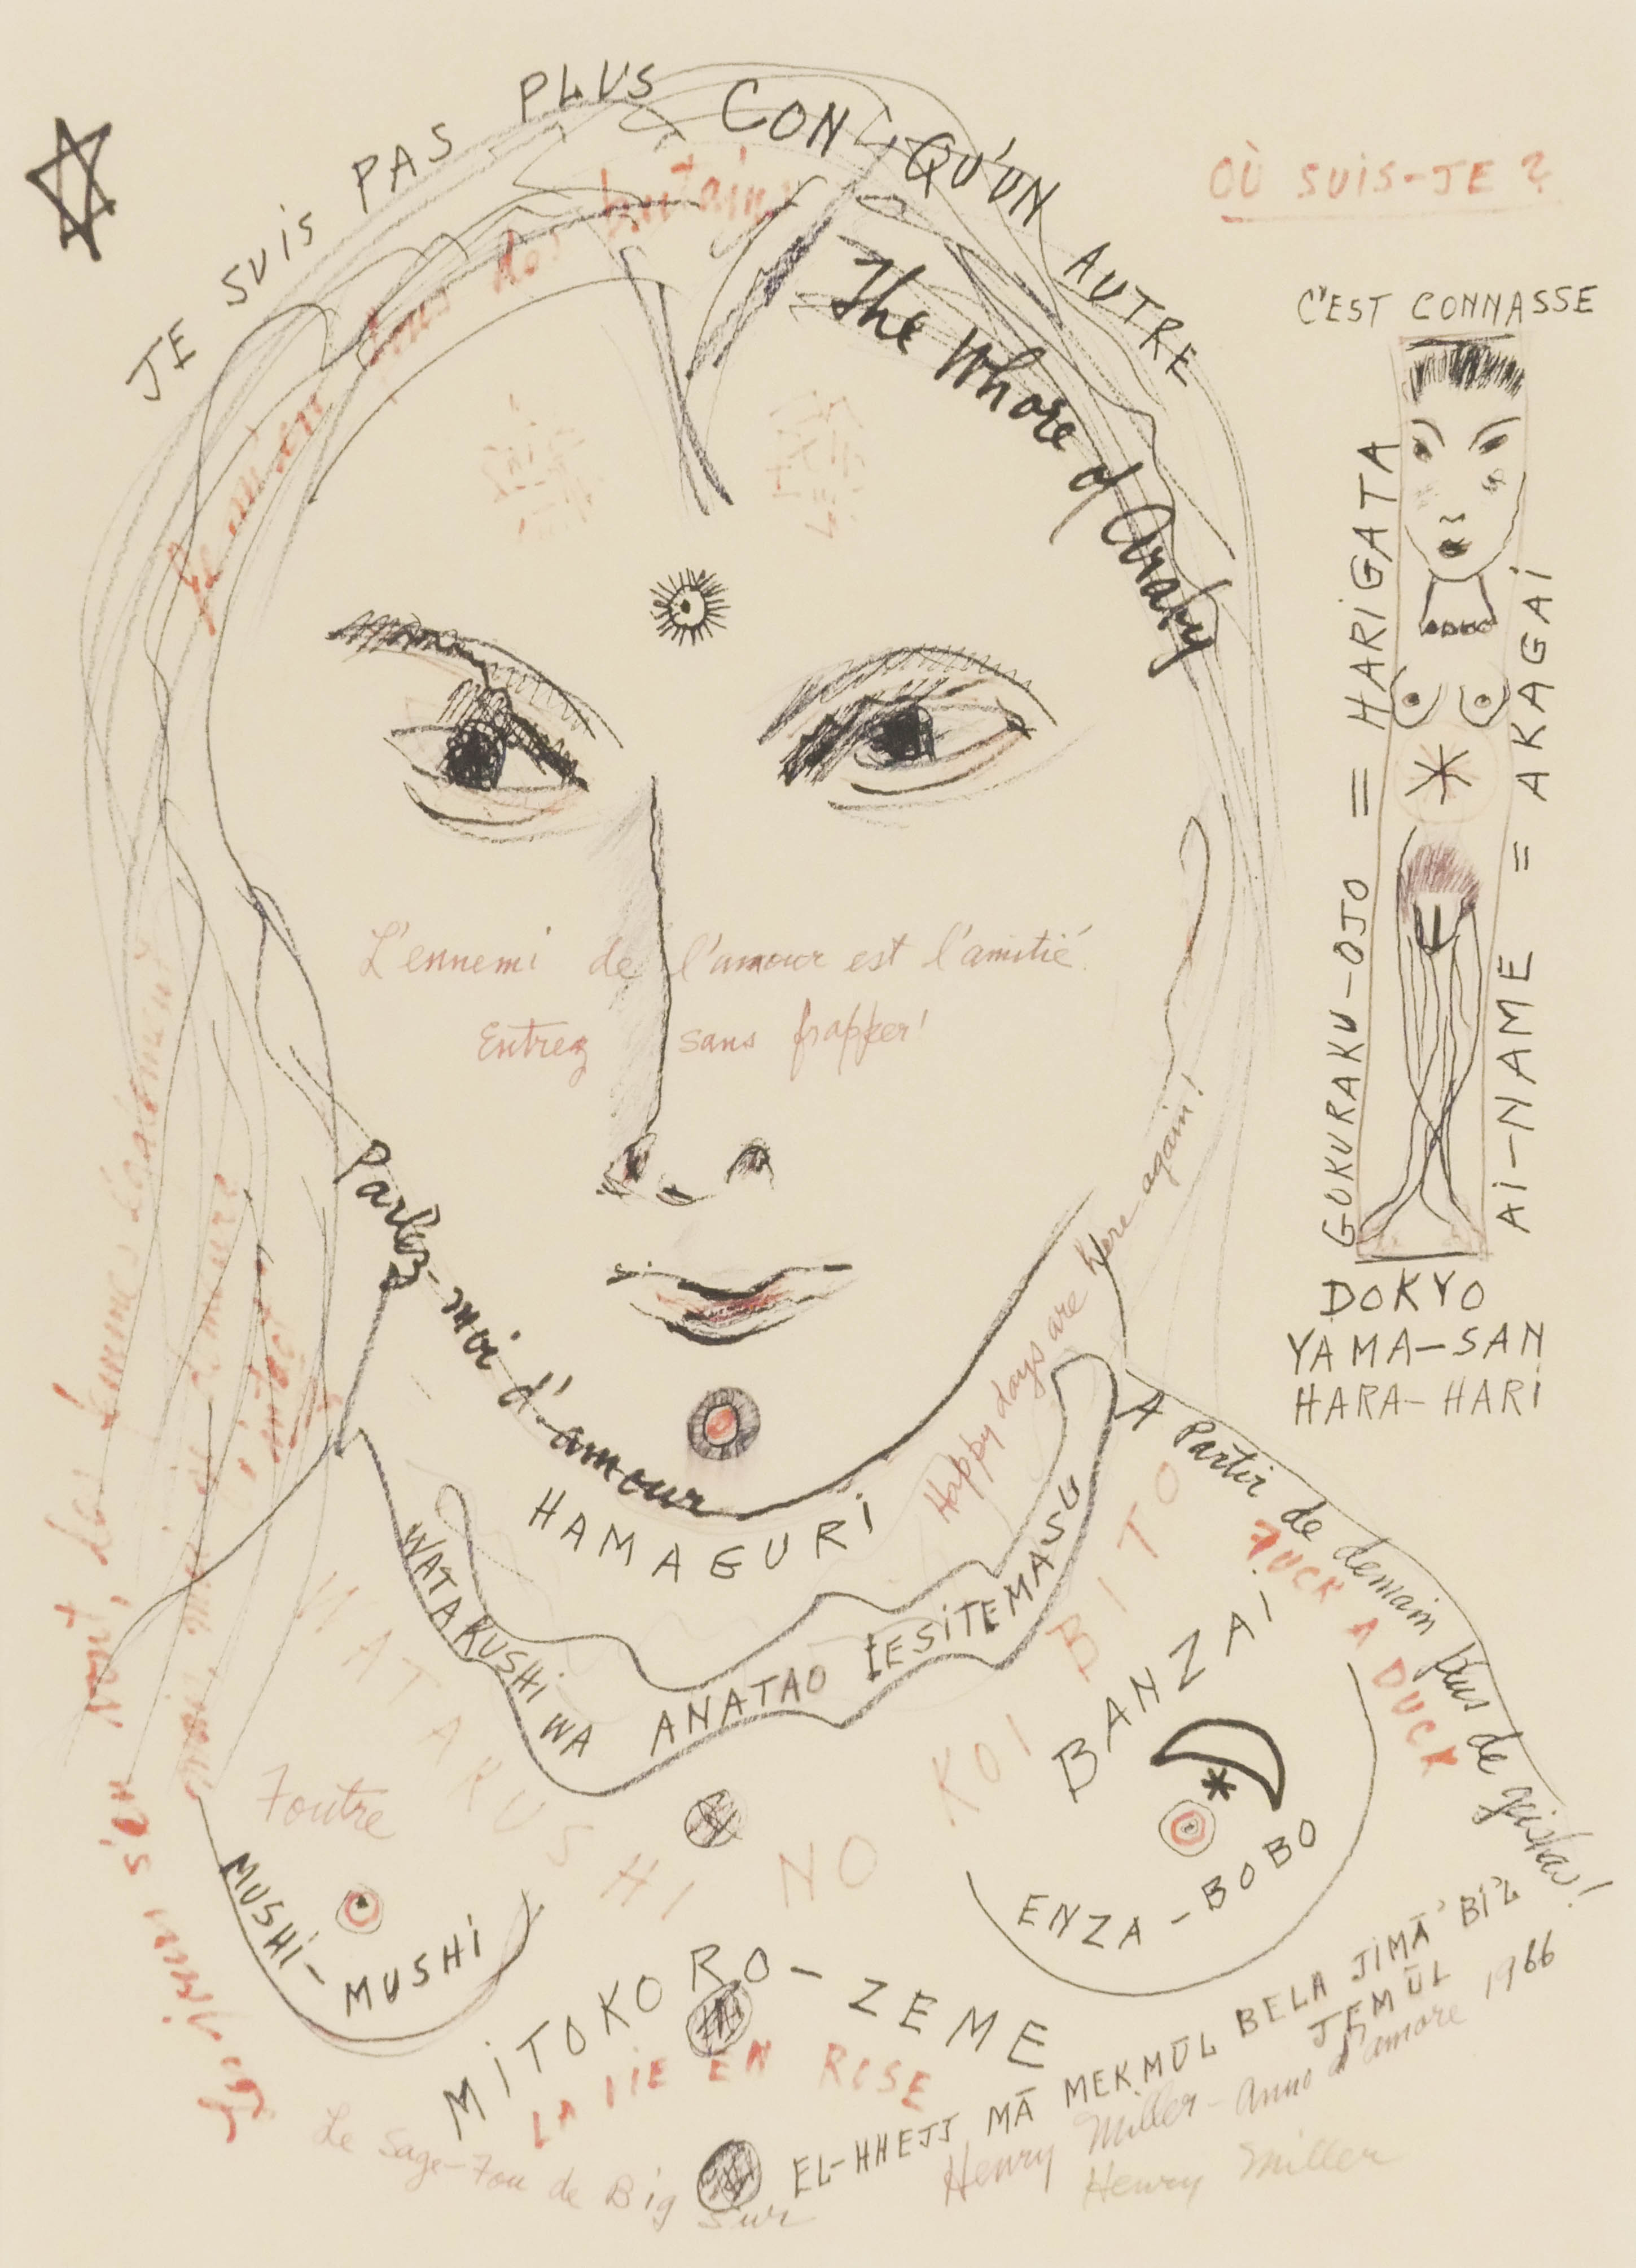 JE SUIS PAS PLUS CON QU'UN AUTRE
OÙ SUIS-JE ?
C'EST CONNASSE
The Whore of Araby
GOKURAKU-OJO = HARIGATA
AI-NAME = AKAGAI
DOKYO
YAMA-SAN
HARA-HARI
L'ennemi de l'amour est l'amitié.
Entrez sans frapper!
Parlez-moi d'amour
Happy days are here again!
HAMAGURI
WATAKUSHI WA ANATAO
A partir de demain plus de geishas!
FUCK A DUCK
WATAKUSHI NO KOI BITO
BANZAI
ENZA-BOBO
Foutre
MUSHI-MUSHI
MITOKORO-ZEME
LA VIE EN ROSE
Le Sage-Fou de Big Sur
EL-HHEJJ MĀ MEKMŪL BELA JIMĀ' BI'L
JEMŪL
Henry Miller - Anno d'amore 1966
Henry Miller